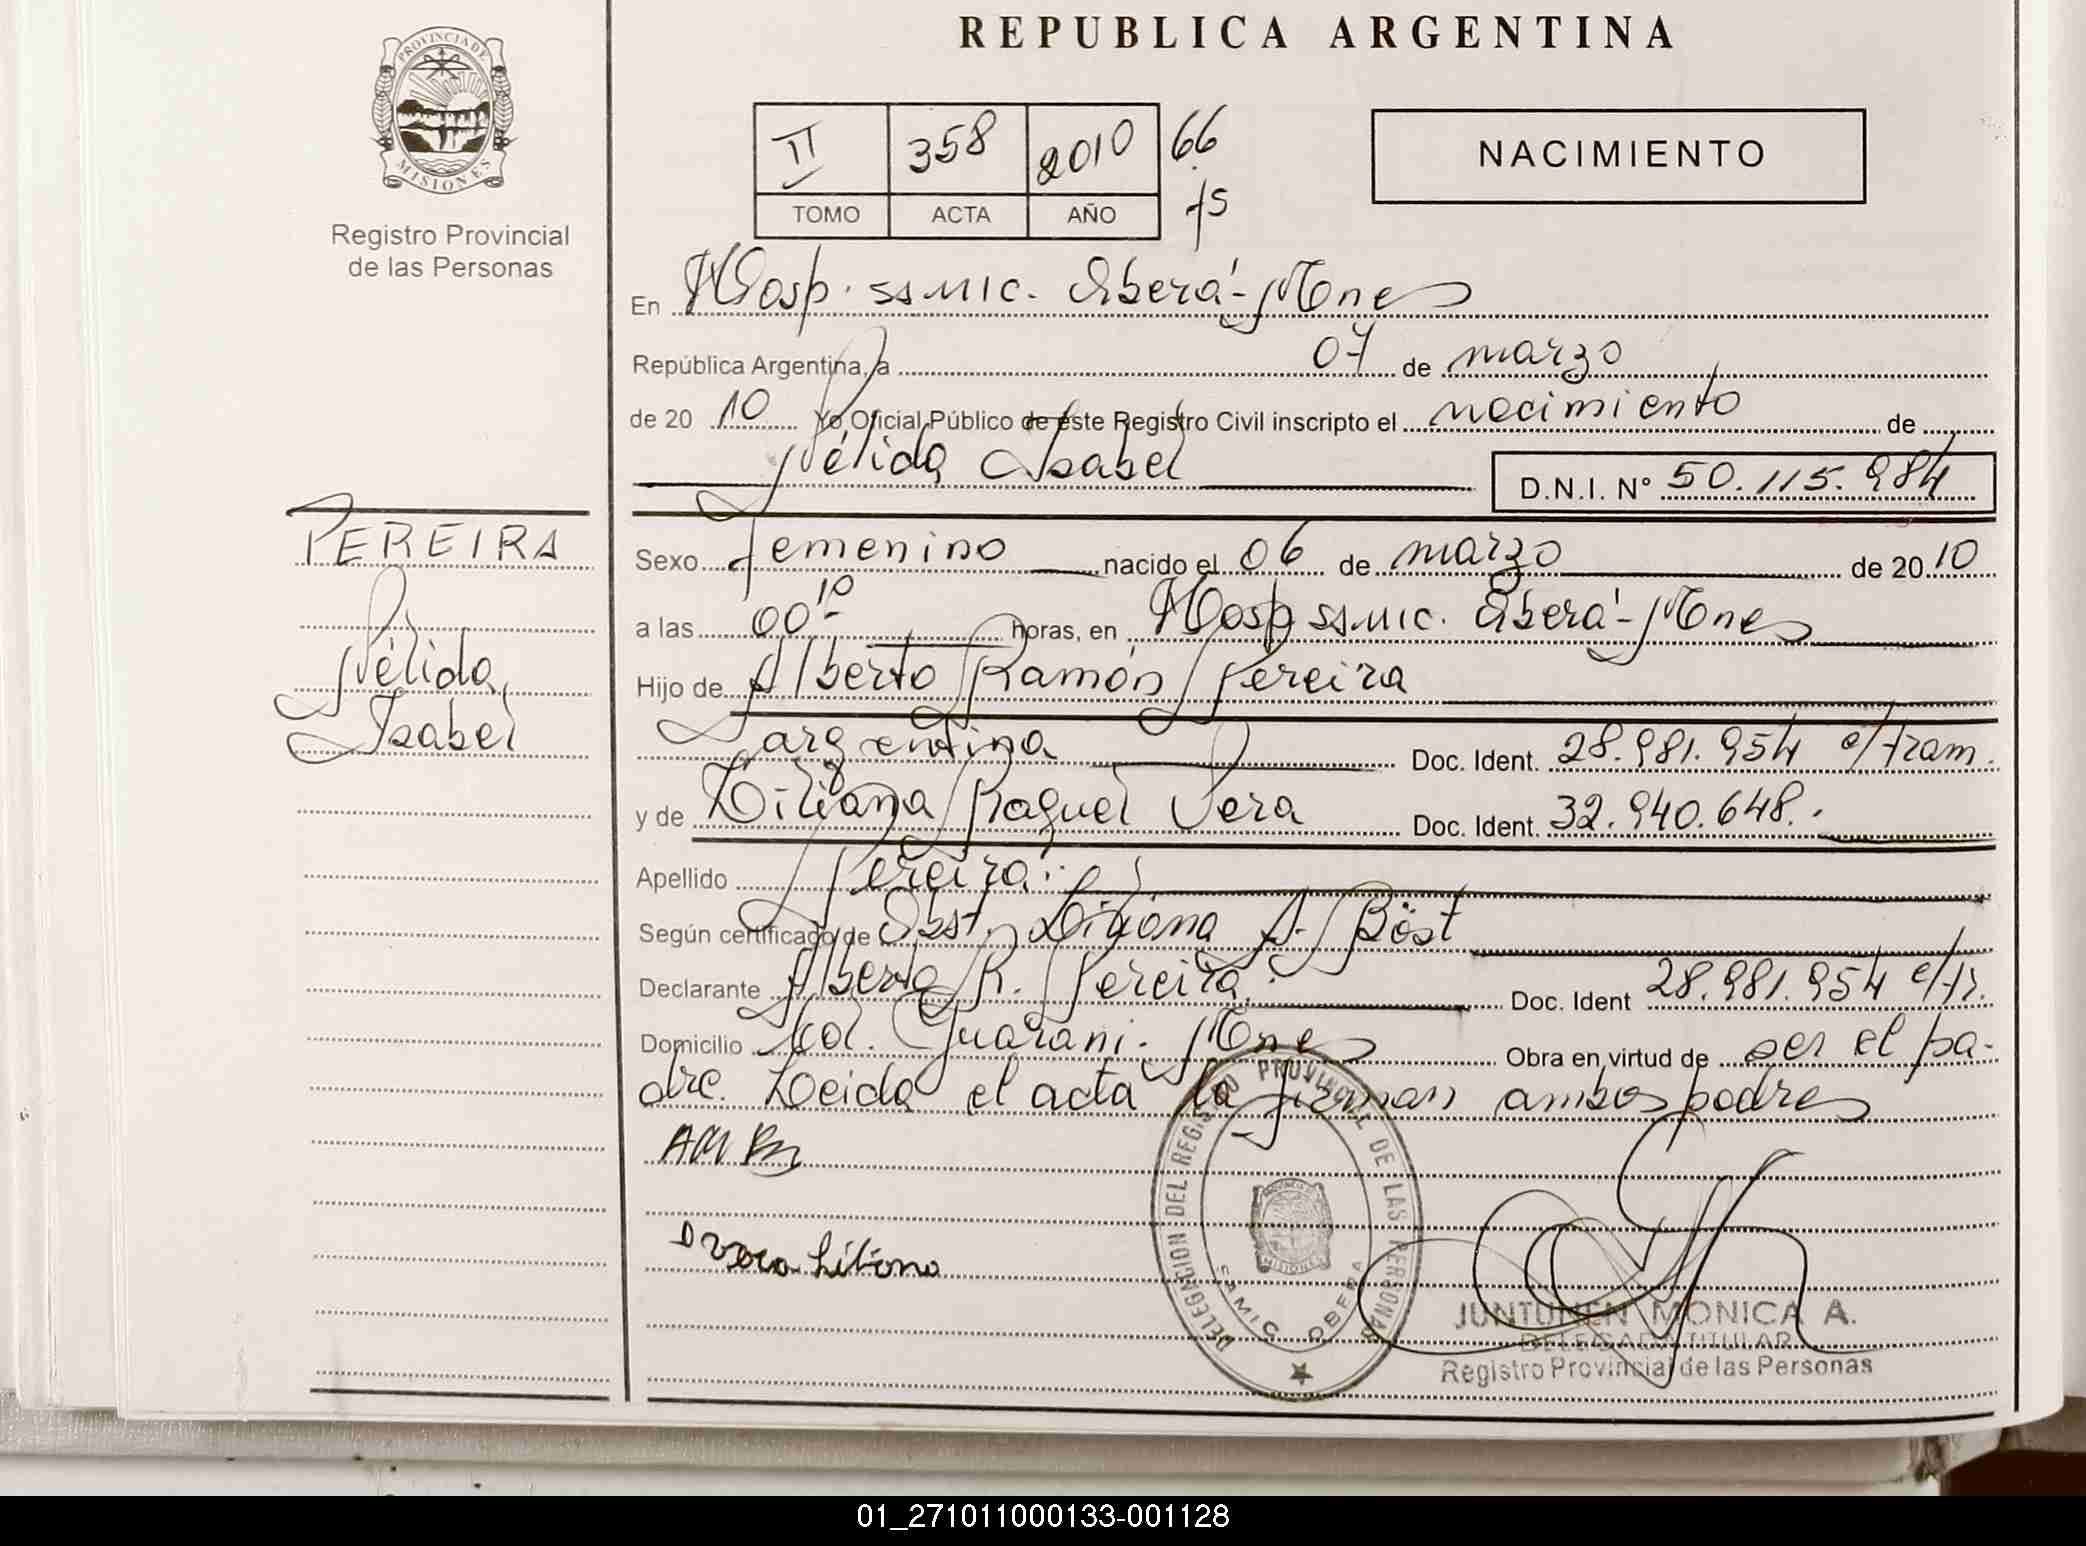 REPUBLICA ARGENTINA
PROVINCIA DE
MISIONES
Registro Provincial
de las Personas
II 358 2010 66
TOMO ACTA AÑO fs
NACIMIENTO
En Hosp. ssmic. Oberá - Mnes
República Argentina, a 07 de marzo
de 20 10 Yo Oficial Público de este Registro Civil inscripto el nacimiento de
Nélida Isabel D.N.I. Nº 50.115.984
PEREIRA
Nélida
Isabel
Sexo femenino nacido el 06 de marzo de 20 10
a las 00 10 horas, en Hosp ssmic. Oberá - Mnes
Hijo de Alberto Ramón Pereira
argentina Doc. Ident. 28.981.954 c/tram.
y de Liliana Raquel Vera Doc. Ident. 32.940.648.
Apellido Pereira
Según certificado de Obst. Liliana A. Böst
Declarante Alberto R. Pereira. Doc. Ident 28.981.954 c/tr.
Domicilio Col. Guaraní. Mnes Obra en virtud de ser el pa-
dre. Leida el acta la firman ambos padres
Vera Liliana
DELEGACION DEL REGISTRO PROVINCIAL DE LAS PERSONAS
MISIONES
SAMIC OBERA
JUNTUNEN MONICA A.
DELEGADA TITULAR
Registro Provincial de las Personas
01_271011000133-001128